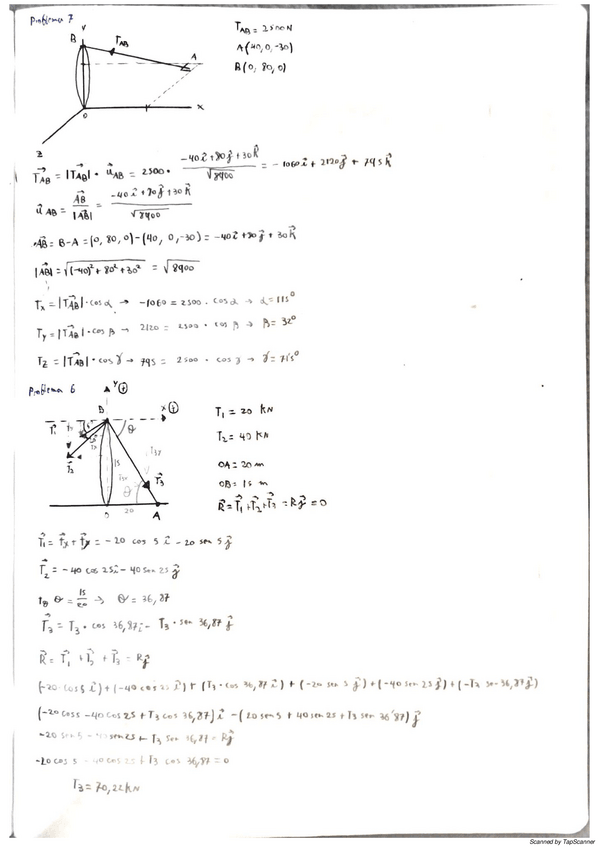 Problema 7
T_AB = 2500N
A(40,0,-30)
B(0, 80, 0)
Y
B
T_AB
A
O
X
Z
T_AB = |T_AB| · u_AB = 2500 · (-40i + 80j + 30k)/√8900 = -1060i + 2120j + 795k
u_AB = AB/|AB| = (-40i + 80j + 30k)/√8900
AB = B-A = (0, 80, 0) - (40, 0, -30) = -40i + 80j + 30k
|AB| = √((-40)² + 80² + 30²) = √8900
Tx = |T_AB| · cos α → -1060 = 2500 · cos α → α = 115°
Ty = |T_AB| · cos β → 2120 = 2500 · cos β → β = 32°
Tz = |T_AB| · cos γ → 795 = 2500 · cos γ → γ = 71,5°
Problema 6
Y (+)
B
X (+)
θ
T1
T2
T3y
15
T3x
θ
T3
O
20
A
T1 = 20 KN
T2 = 40 KN
OA = 20 m
OB = 15 m
R = T1 + T2 + T3 = Rj = 0
T1 = Tx + Ty = -20 cos 5 i - 20 sen 5 j
T2 = -40 cos 25 i - 40 sen 25 j
tg θ = 15/20 → θ = 36,87
T3 = T3 · cos 36,87 i - T3 · sen 36,87 j
R = T1 + T2 + T3 = Rj
(-20 · cos 5 i) + (-40 cos 25 i) + (T3 · cos 36,87 i) + (-20 sen 5 j) + (-40 sen 25 j) + (-T3 sen 36,87 j)
(-20 cos 5 - 40 cos 25 + T3 cos 36,87) i - (20 sen 5 + 40 sen 25 + T3 sen 36,87) j
-20 sen 5 - 40 sen 25 + T3 sen 36,87 = Rj
-20 cos 5 - 40 cos 25 + T3 cos 36,87 = 0
T3 = 70,22 KN
Scanned by TapScanner